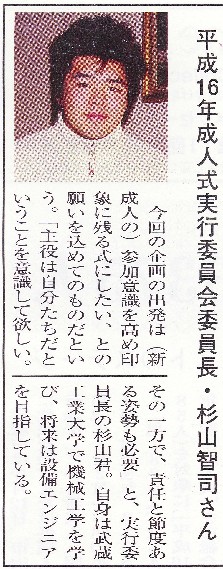 平成16年成人式実行委員会委員長・杉山智司さん
今回の企画の出発は（新
成人の）参加意識を高め印
象に残る式にしたい、との
願いを込めてのものだとい
う。「主役は自分たちだと
いうことを意識して欲しい。
その一方で、責任と節度あ
る姿勢も必要」と、実行委
員長の杉山君。自身は武蔵
工業大学で機械工学を学
び、将来は設備エンジニア
を目指している。